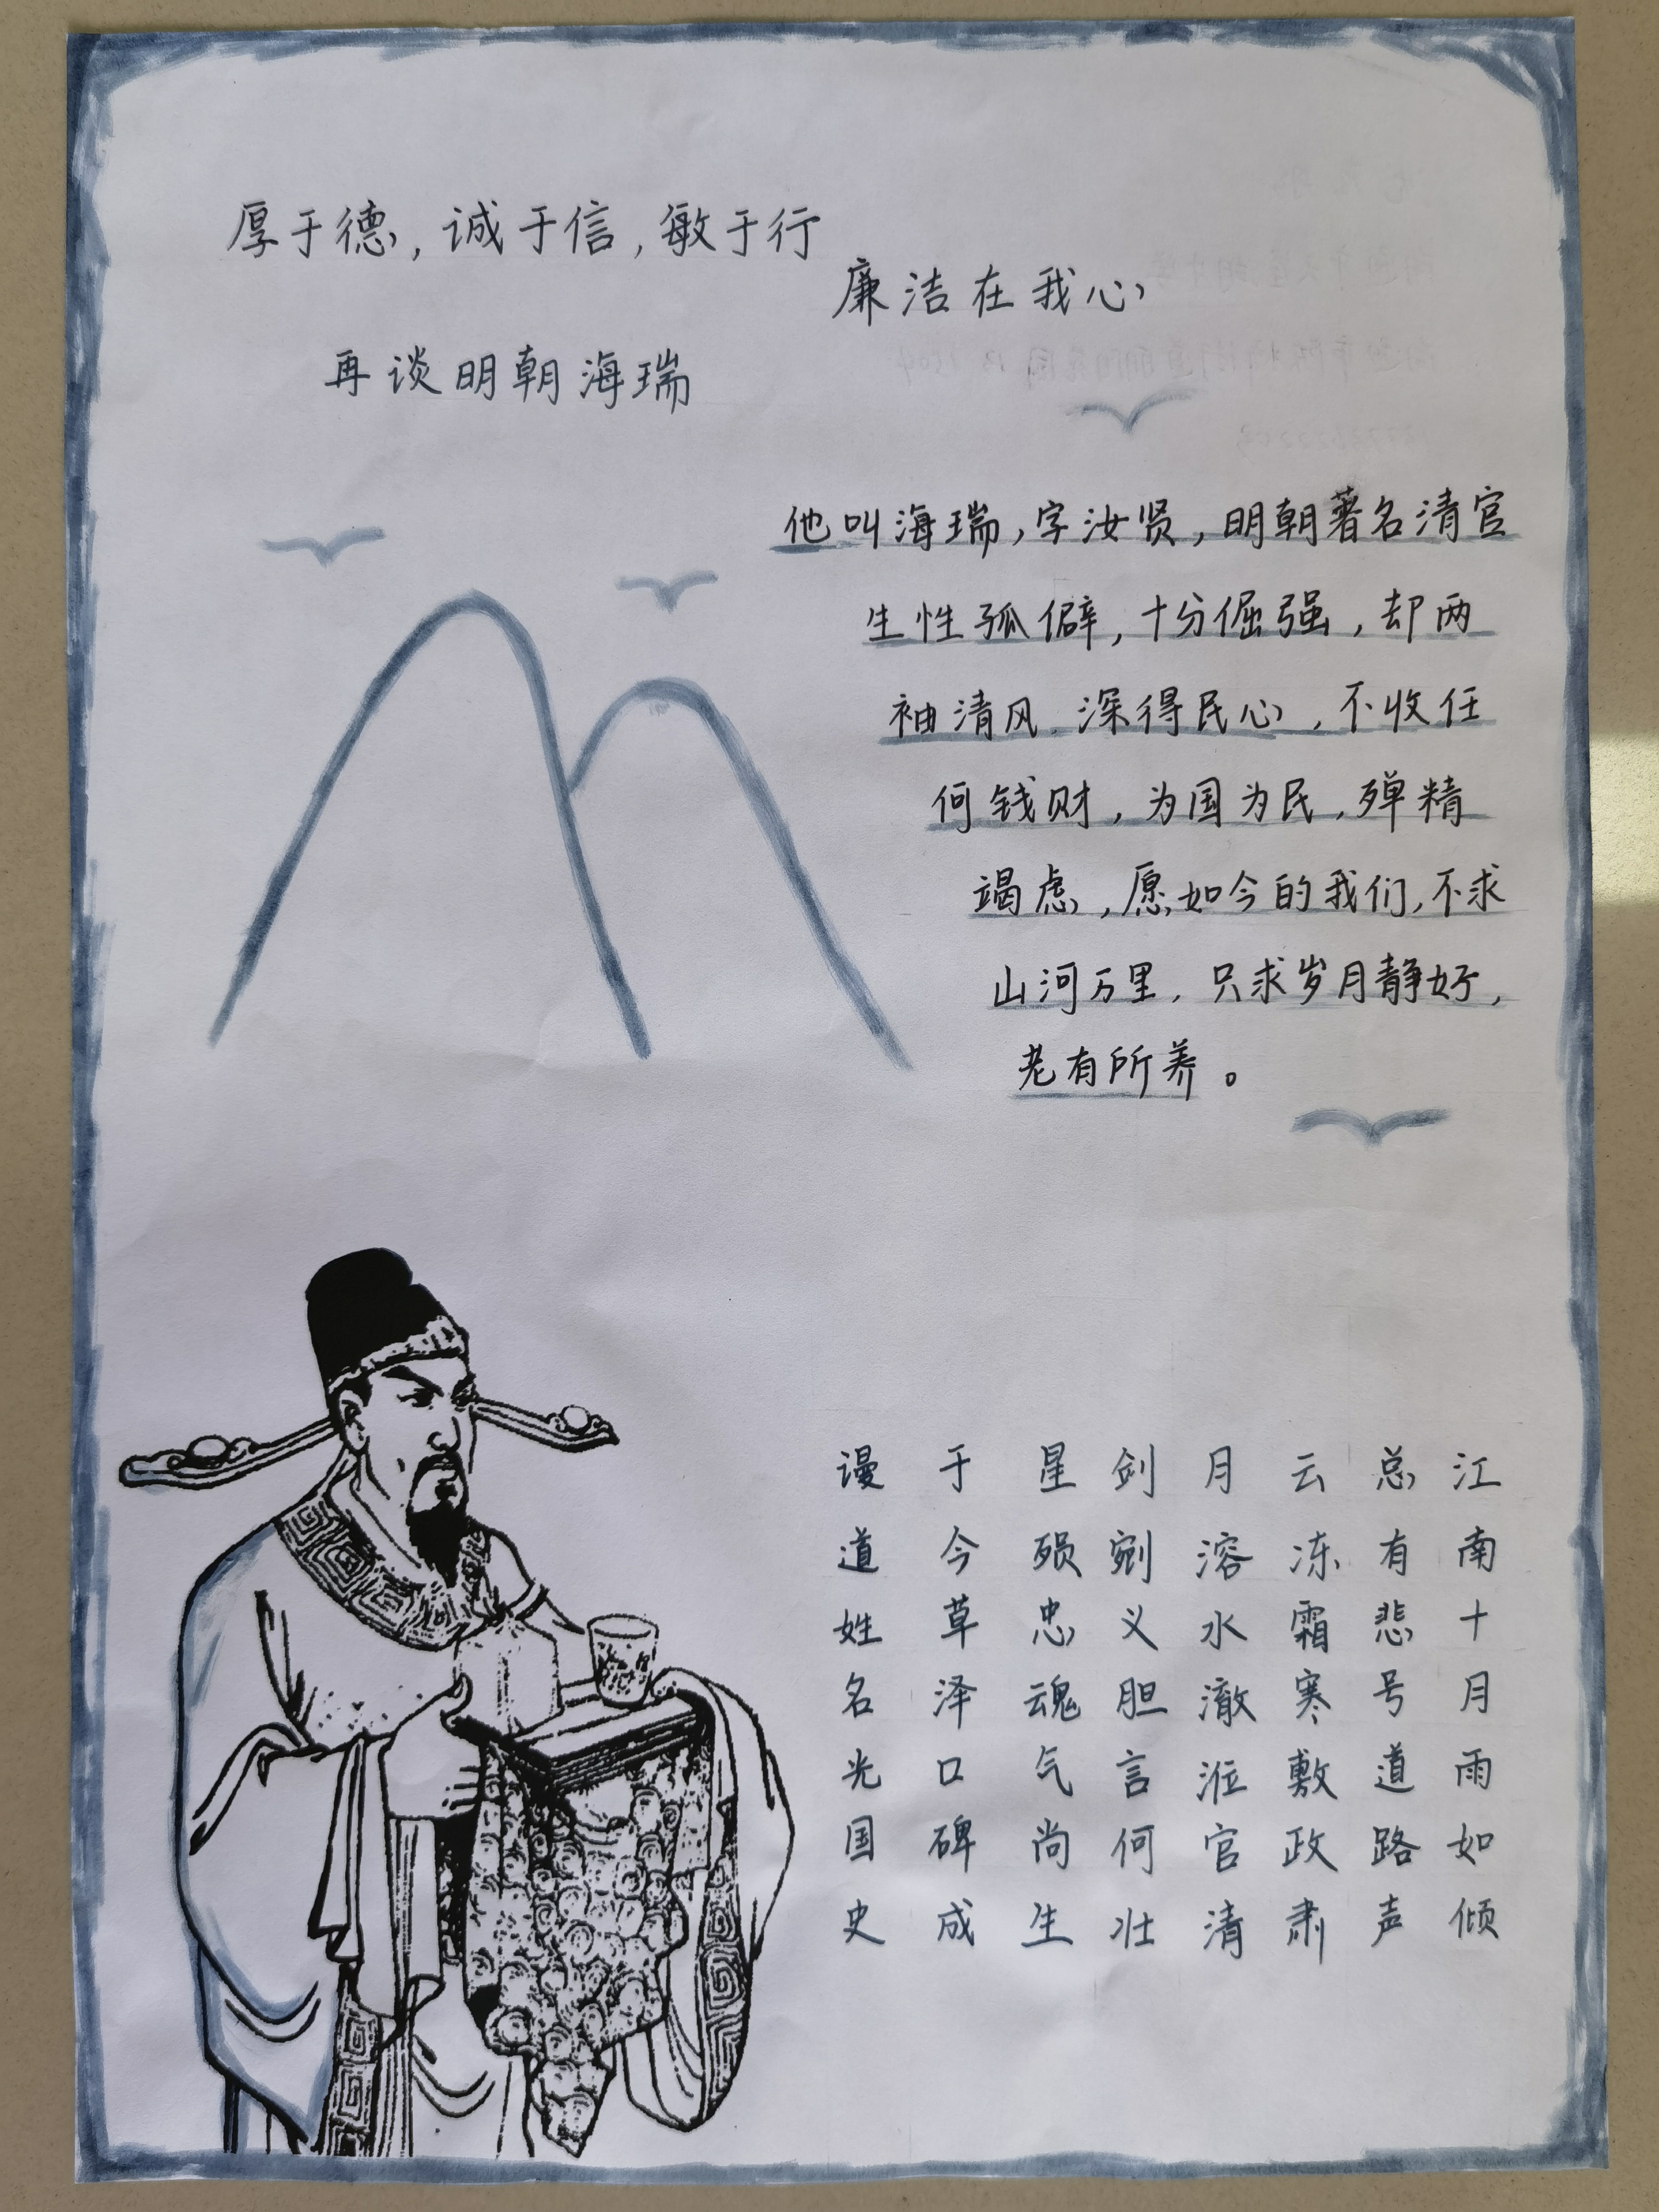 厚于德，诚于信，敏于行
廉洁在我心
再谈明朝海瑞
他叫海瑞，字汝贤，明朝著名清官
生性孤僻，十分倔强，却两
袖清风，深得民心，不收任
何钱财，为国为民，殚精
竭虑，愿如今的我们，不求
山河万里，只求岁月静好，
老有所养。
江南十月雨如倾
总有悲号道路声
云冻霜寒敷政肃
月溶水澈涖官清
剑剜义胆言何壮
星殒忠魂气尚生
于今草泽口碑成
谩道姓名光国史